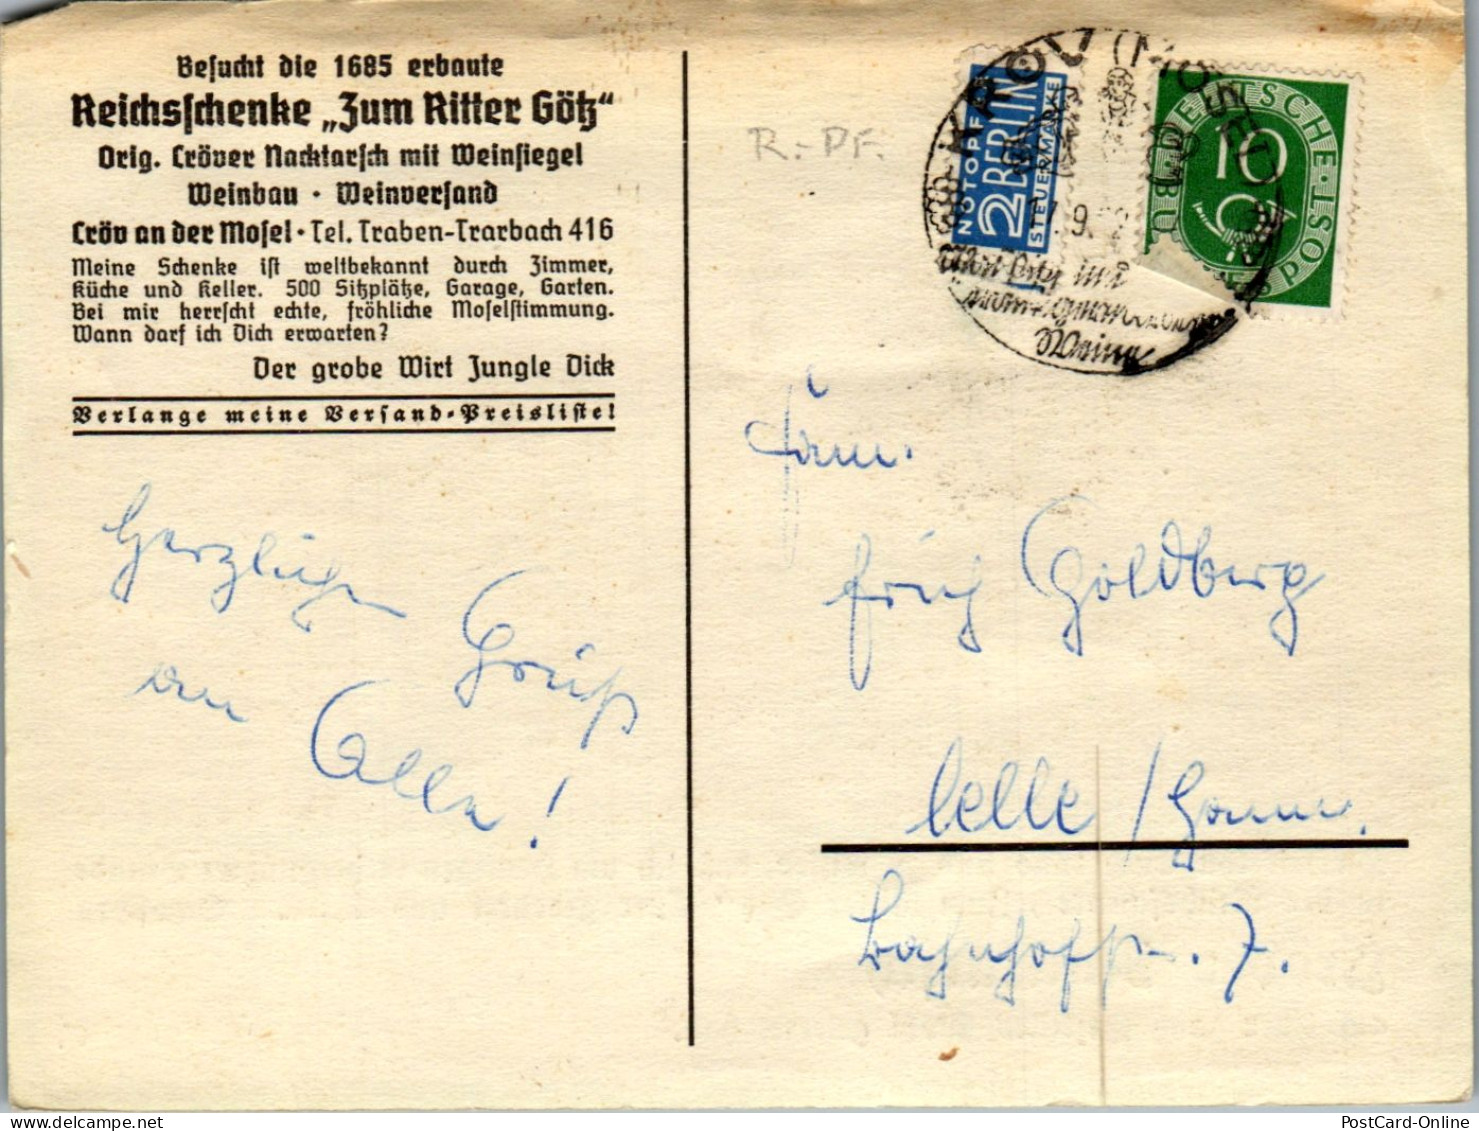 Besucht die 1685 erbaute
Reichsschenke „Zum Ritter Götz“
Orig. Cröver Nacktarsch mit Weinsiegel
Weinbau · Weinversand
Cröv an der Mosel · Tel. Traben-Trarbach 416
Meine Schenke ist weltbekannt durch Zimmer,
Küche und Keller. 500 Sitzplätze, Garage, Garten.
Bei mir herrscht echte, fröhliche Moselstimmung.
Wann darf ich Dich erwarten?
Der grobe Wirt Jungle Dick
Verlange meine Versand-Preisliste!
Herzlichen Gruß
an Alle!
R.-PF.
NOTOPFER
2 BERLIN
STEUERMARKE
KRÖV (MOSEL)
9.
Weine
DEUTSCHE POST
10
Fam.
Erich Goldberg
Celle / Hann.
Bahnhofstr. 7.
PostCard-Online